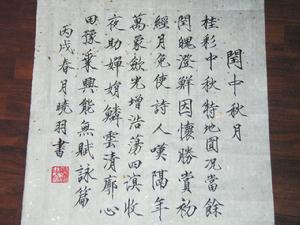 閏中秋月
桂彩中秋特地圓況當餘
閏魄澄鮮因懷勝賞初
經月免使詩人嘆隔年
萬象斂光增浩蕩四溟收
夜助嬋娟鱗雲清廓心
田豫乘興能無賦詠篇
丙戌春月曉羽書